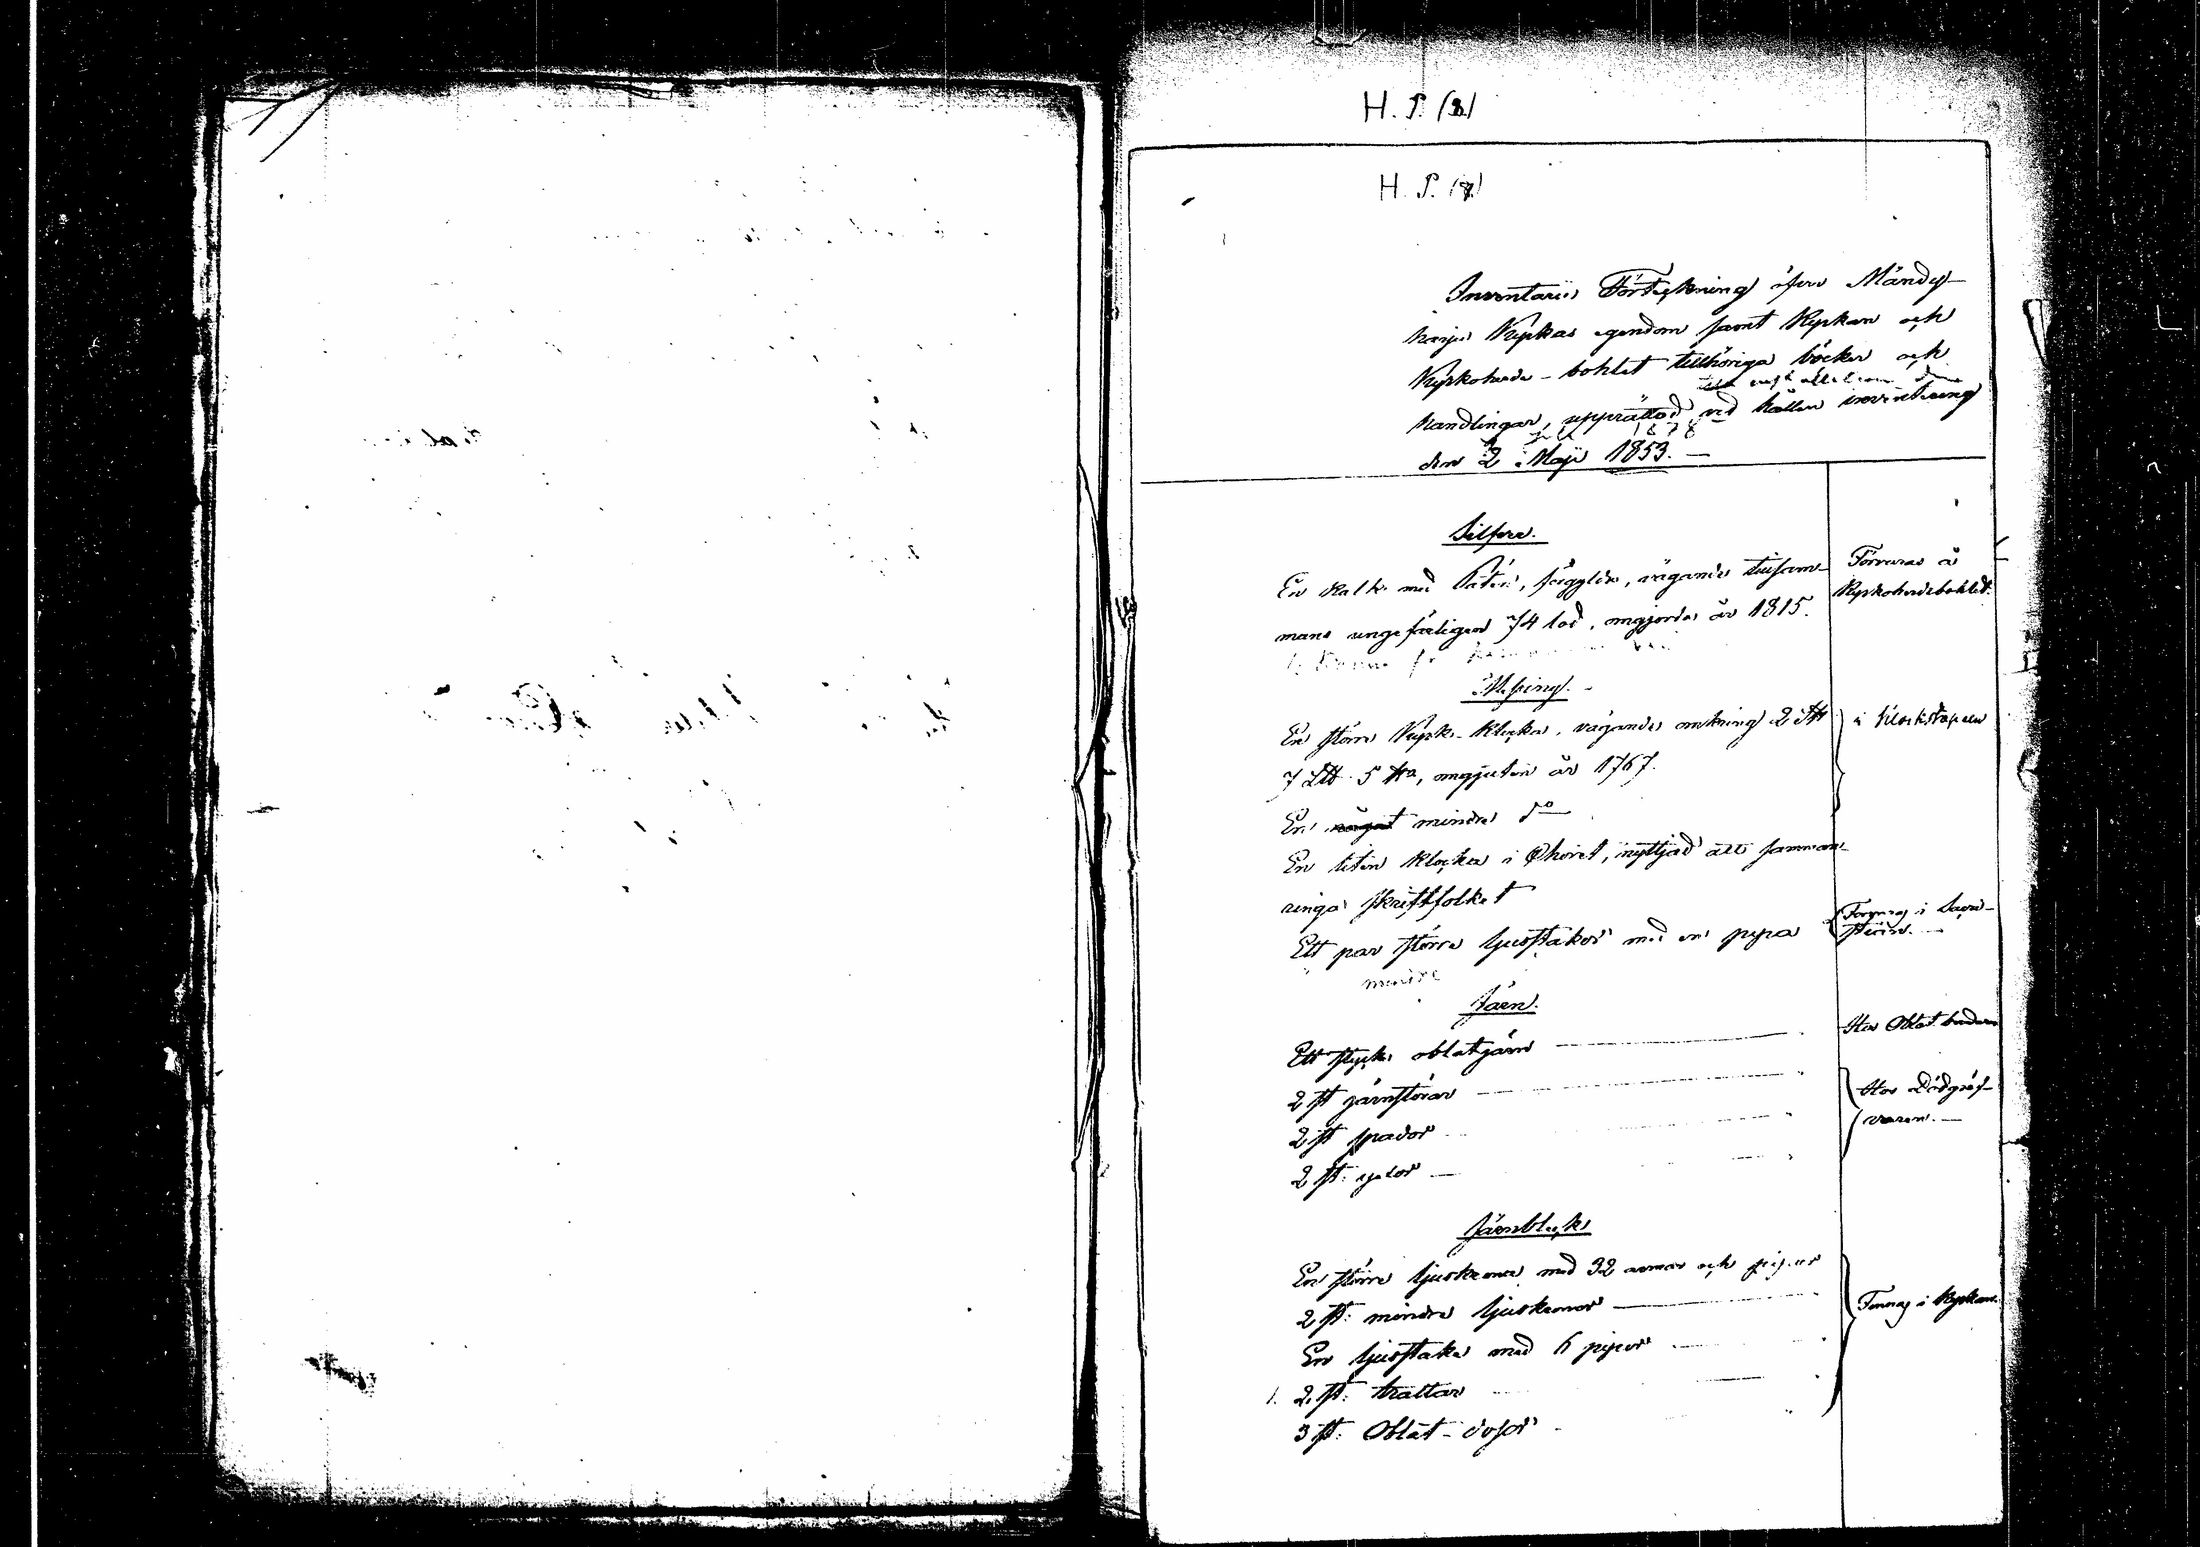 H. P. (8.)
H. P. (7.)
Inventarii Förteckning öfver Mändy-
harju Kyrkas egendom samt Kyrkan och
Kyrkoherde-bohlet tillhöriga böcker och
handlingar, upprättad ved hållen inventering
1878
den 2 Maji 1853. —
Silfver.
En Kalk med Patén, förgyllde, vägande tillsam-
mans ungefärligen 74 lod, omgjorde år 1815.
Förvaras å
Kyrkoherdebohlet.
Messing.
En större Kyrk-Klocka, vägande omkring 2
7 L℔ 5 ℔, omgjuten år 1767.
i Klockstapeln
En något mindre do
En liten Klocka i Choret, nyttjad att samman-
ringa skriftfolket
Ett par större ljusstakor med en pipa
Förvaras i Sacri-
stian. —
mindre
Järn.
Ett stycke oblatjärn
Hos Oblat
2 st järnstörar
2 st spador
2 st:
Hos Dödgräf-
varen. —
Järnbleck
En större ljuskrona med 32 armar och pipor
2 st: mindre ljuskronor
En ljusstake med 6 pipor
1. 2 st: trattar
3 st: Oblat-dosor
Finnas i Kyrkan.